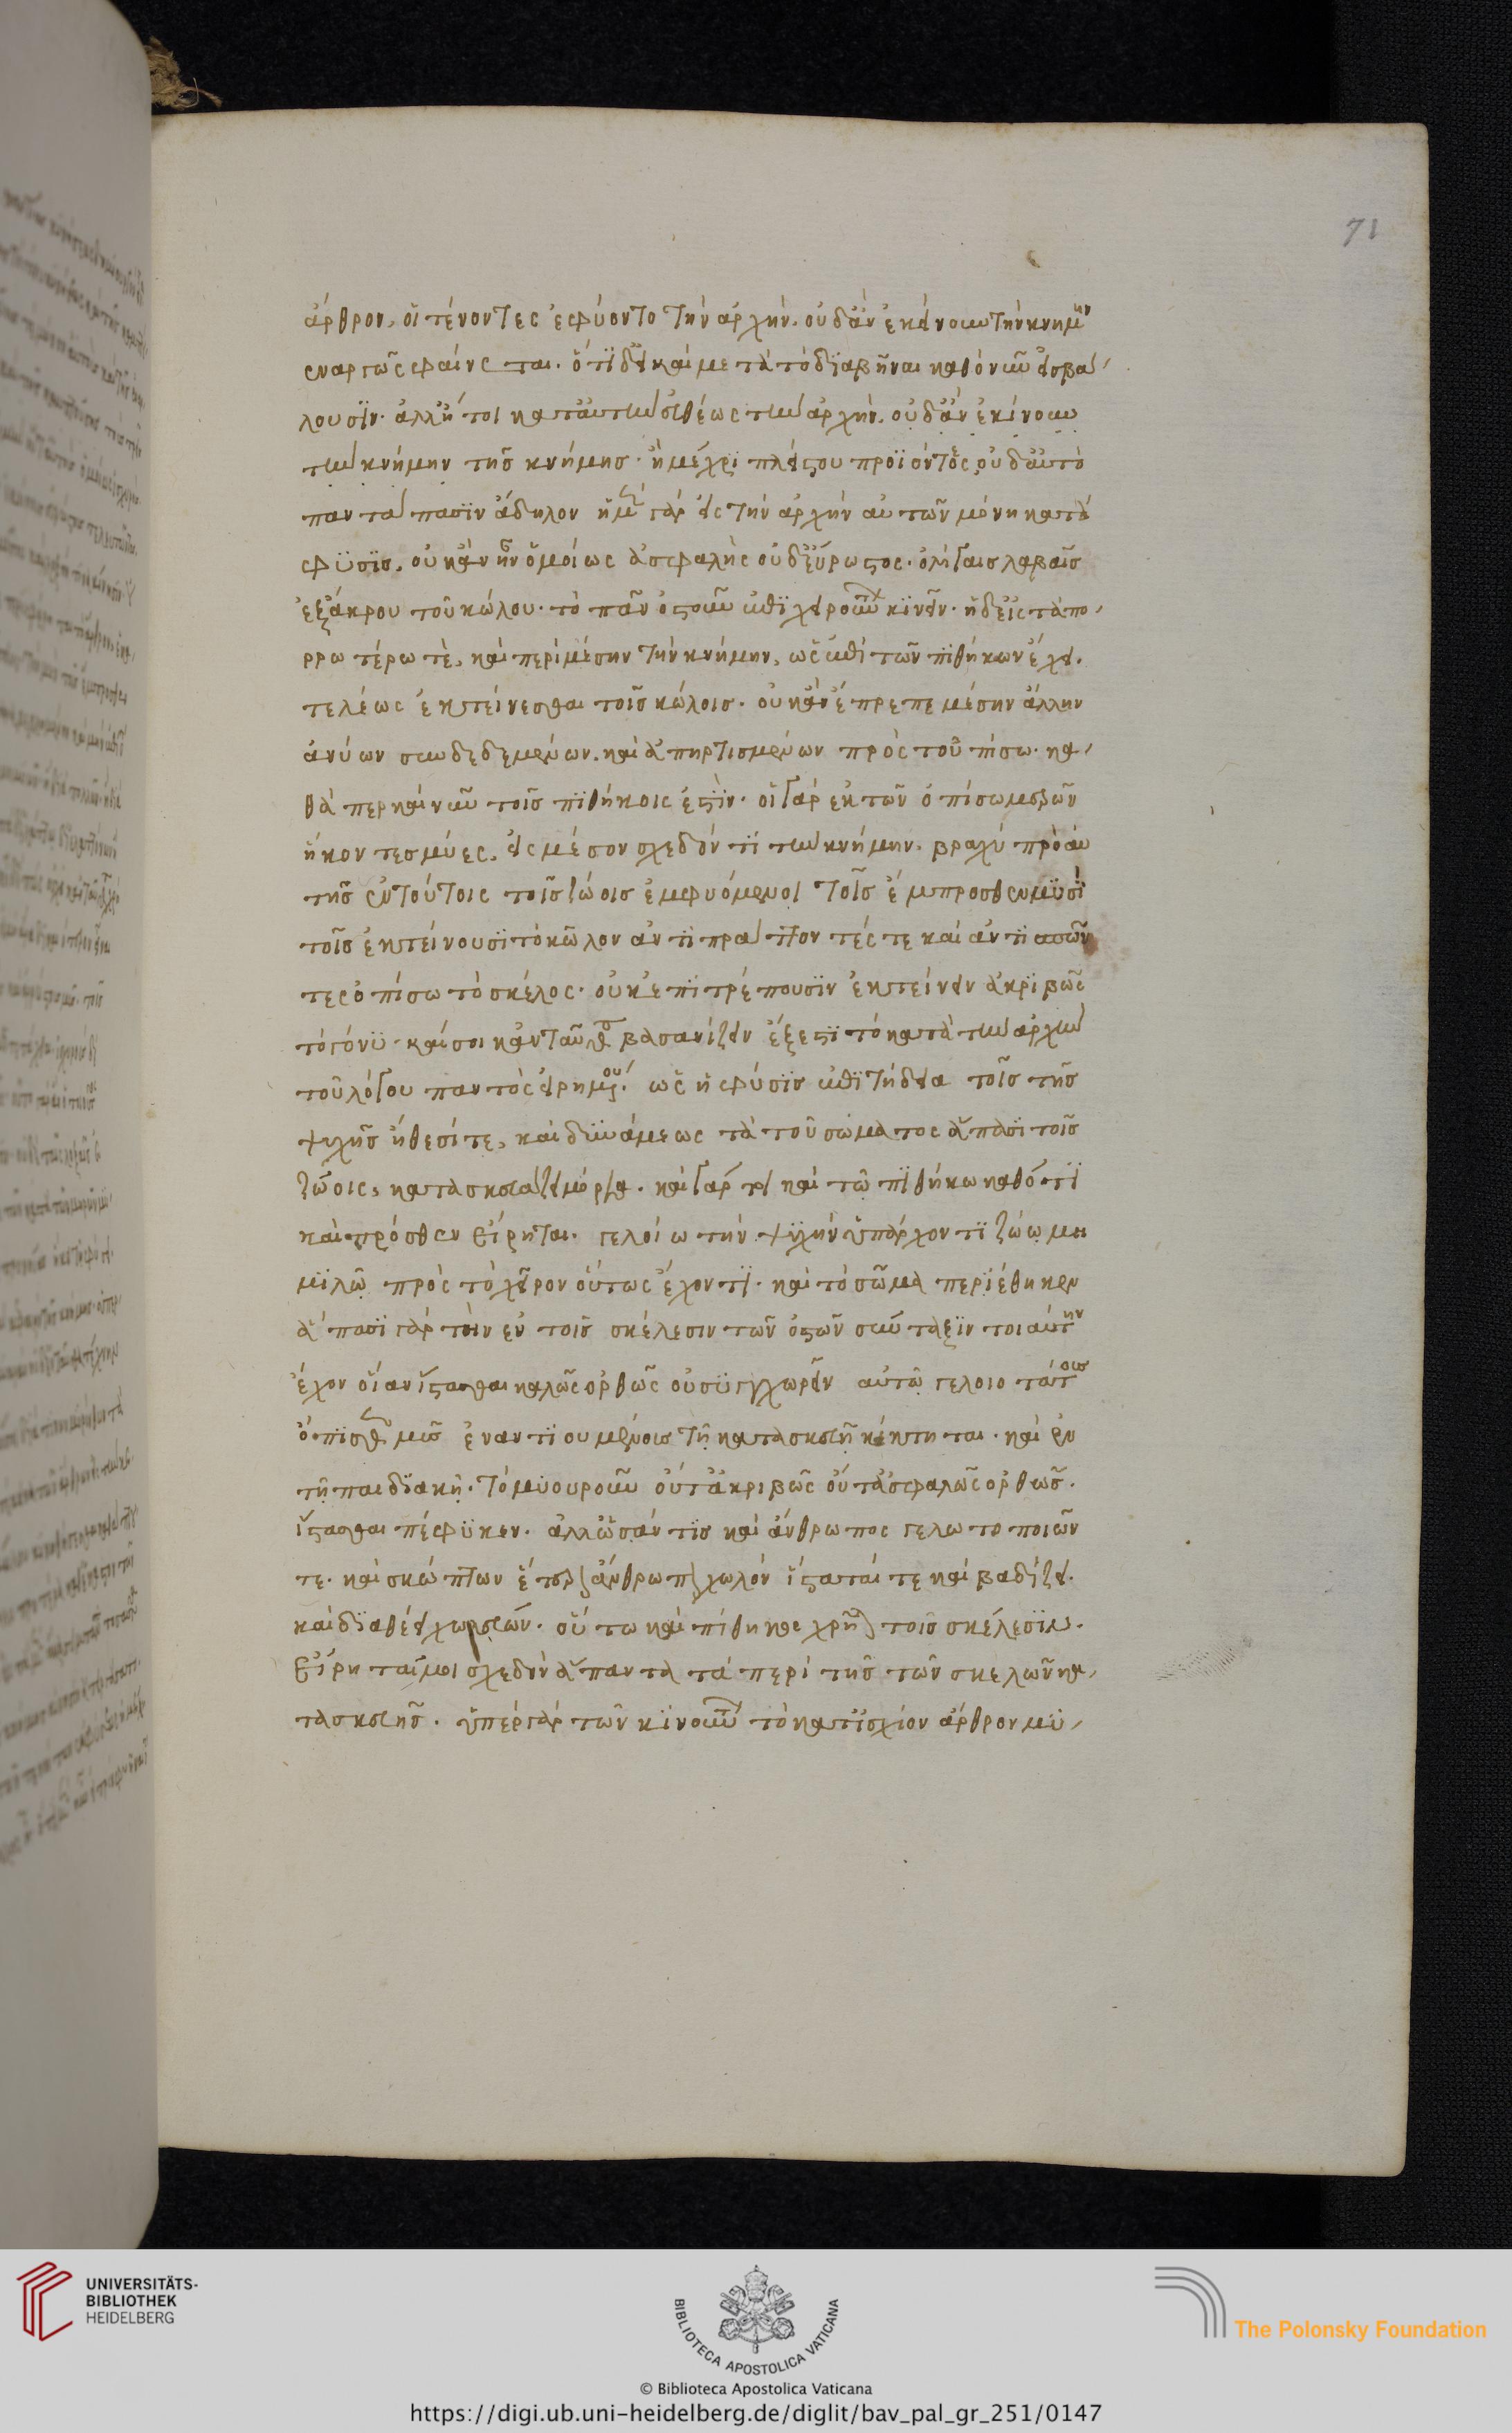 71
ἄρθρον, οἱ τένοντες ἐφύοντο τὴν ἀρχὴν. οὐδἂν ἐκίνουν τὴν κνήμην
ἐναργῶς φαίνεται. ὅτι δὲ καὶ μετὰ τὸ διαβῆναι καθὸ νῦν ἐσβάλ
λουσιν. ἀλλ ἤτοι κατ αὐτὴν εὐθέως τὴν ἀρχὴν. οὐδἂν ἐκίνουν
τὴν κνήμην τῆς κνήμης. ἢ μέχρι πλείστου προϊόντες οὐδ αὐτὸ
παντάπασιν ἄδηλον ἡ μὲν γὰρ εἰς τὴν ἀρχὴν αὐτῶν μόνη κατά
φυσις. οὐκ ἂν ἦν ὁμοίως ἀσφαλὴς οὐδ εὔρωστος. ὀλίγαις λαβαῖς
ἐξ ἄκρου τοῦ κώλου. τὸ πᾶν ὀστοῦν ἐπιχειρούντων κινεῖν. ἡ δ εἰς τὰ πο
ρρωτέρω τὲ, καὶ περὶ μέσην τὴν κνήμην, ὡς ἐπὶ τῶν πιθήκων ἔχει.
τελέως ἐκτείνεσθαι τοῖς κώλοις. οὐκ ἂν ἔπρεπε μέσην ἄλλην
ἀγκύων συνδεδεμένων. καὶ ἀπηρτισμένων πρὸς τοῦ πίσω. κα
θάπερ καὶ νῦν τοῖς πιθήκοις ἐστὶν. οἱ γὰρ ἐκ τῶν ὀπίσω μερῶν
ἥκοντες μύες. εἰς μέσον σχεδόν τι τὴν κνήμην. βραχύ πρὸ αὐ
τῆς ἐν τούτοις τοῖς ζώοις ἐμφυόμενοι τοῖς ἔμπροσθεν μυσὶ
τοῖς ἐκτείνουσι τὸ κῶλον ἀντιπράττοντές τε καὶ ἀντισπῶν
τες ὀπίσω τὸ σκέλος. οὐκ ἐπιτρέπουσιν ἐκτείνειν ἀκριβῶς
τὸ γόνυ. καί σοι κἀνταῦθα βασανίζειν ἔξεστι τὸ κατὰ τὴν ἀρχὴν
τοῦ λόγου παντὸς εἰρημένον. ὡς ἡ φύσις ἐπιτήδεια τοῖς τῆς
ψυχῆς ἤθεσί τε, καὶ δυνάμεως τὰ τοῦ σώματος ἅπασι τοῖς
ζώοις, κατασκευάζει μόρια. καὶ γάρ τοι καὶ τῷ πιθήκω καθότι
καὶ πρόσθεν εἴρηται. γελοίω τὴν ψυχὴν ὑπάρχοντι ζώω μι
μιλῶ πρὸς τὸ χεῖρον οὕτως ἔχοντι. καὶ τὸ σῶμα περιέθηκεν
ἅπασι γὰρ τὴν ἐν τοῖς σκέλεσιν τῶν ὀστῶν σύνταξιν τοιαύτην
ἔχον οἵαν ἵστασθαι καλῶς ὀρθῶς οὐ συγχωρεῖν αὐτῷ γελοιοτάτους
ὄπισθεν μῦς ἐναντιουμένους τῇ κατασκευῇ κέκτηται. καὶ ἐν
τῇ παιδιακῇ. τὸ μύουρον οὔτ ἀκριβῶς οὔτ ἀσφαλῶς ὀρθῶς.
ἵστασθαι πέφυκεν. ἀλλ ὡς ἄν τις καὶ ἄνθρωπος γελωτοποιῶν
τε. καὶ σκώπτων ἕτερον ἄνθρωπον χωλὸν ἵσταταί τε καὶ βαδίζει.
καὶ διαθέει χωλεύων. οὕτω καὶ πίθηκος χρῆται τοῖς σκέλεσιν.
Εἴρηταί μοι σχεδὸν ἅπαντα τὰ περὶ τῆς τῶν σκελῶν κα
τασκευῆς. ὑπὲρ γὰρ τῶν κινούντων τὸ κατ ἰσχίον ἄρθρον μυ
UNIVERSITÄTS-
BIBLIOTHEK
HEIDELBERG
BIBLIOTECA APOSTOLICA VATICANA
The Polonsky Foundation
© Biblioteca Apostolica Vaticana
https://digi.ub.uni-heidelberg.de/diglit/bav_pal_gr_251/0147